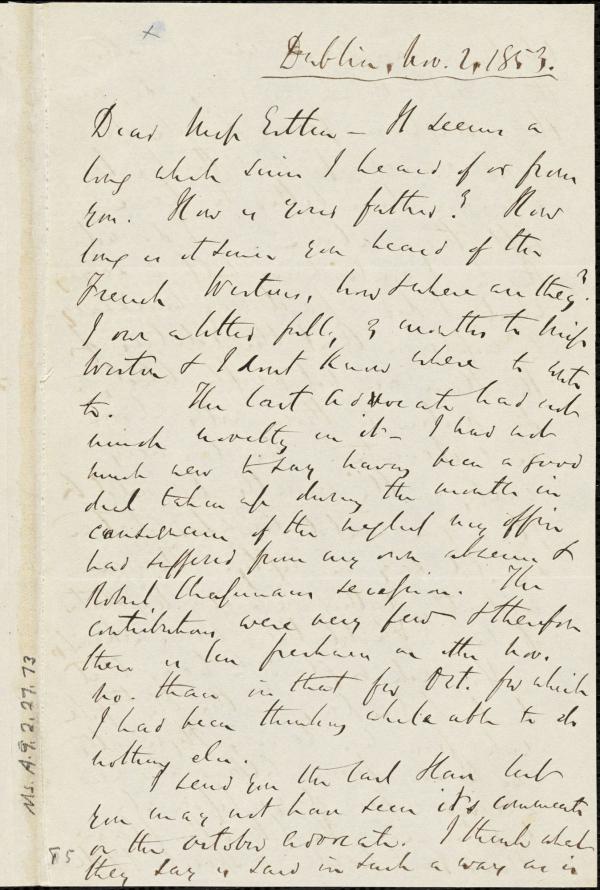 Dublin, Nov. 2, 1853.
Dear Miss Esther - It seems a
long while since I heard of or from
you. How is your father? How
long is it since you heard of the
French Westons, how & where are they?
I owe a letter full, 3 months to Miss
Weston & I dont know where to write
to. The last Advocate had not
much novelty in it - I had not
much new to say having been a good
deal taken up during the month in
consequence of the neglect my office
had suffered from my own absence &
Robert Chapman's secession. The
contributions were very few & therefore
there is less freshness in the Nov.
no. than in that for Oct. for which
I had been thinking while able to do
nothing else.
I send you the last Slave lest
you may not have seen it's comments
on the October Advocate. I think what
they say is said in such a way as is
Ms. A.9.2.27.73